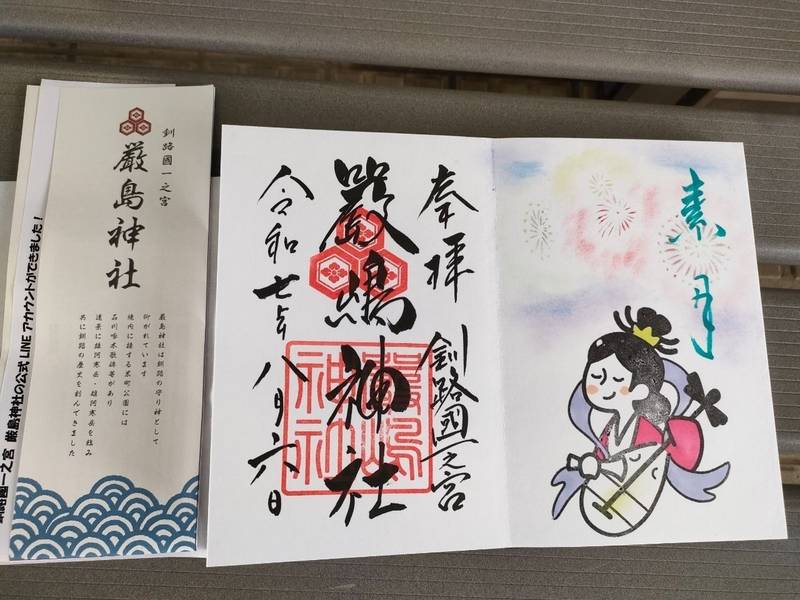 釧路國一之宮
厳島神社
厳島神社は釧路の守り神として
仰がれています
境内に接する米町公園には
石川啄木歌碑等があり
遠景に雄阿寒岳・雌阿寒岳を臨み
共に釧路の歴史を刻んできました
釧路國一之宮 厳島神社の公式LINEアカウントができました！
奉拝 釧路國一之宮
嚴嶋神社
嚴嶋神社
令和七年八月六日
葉月